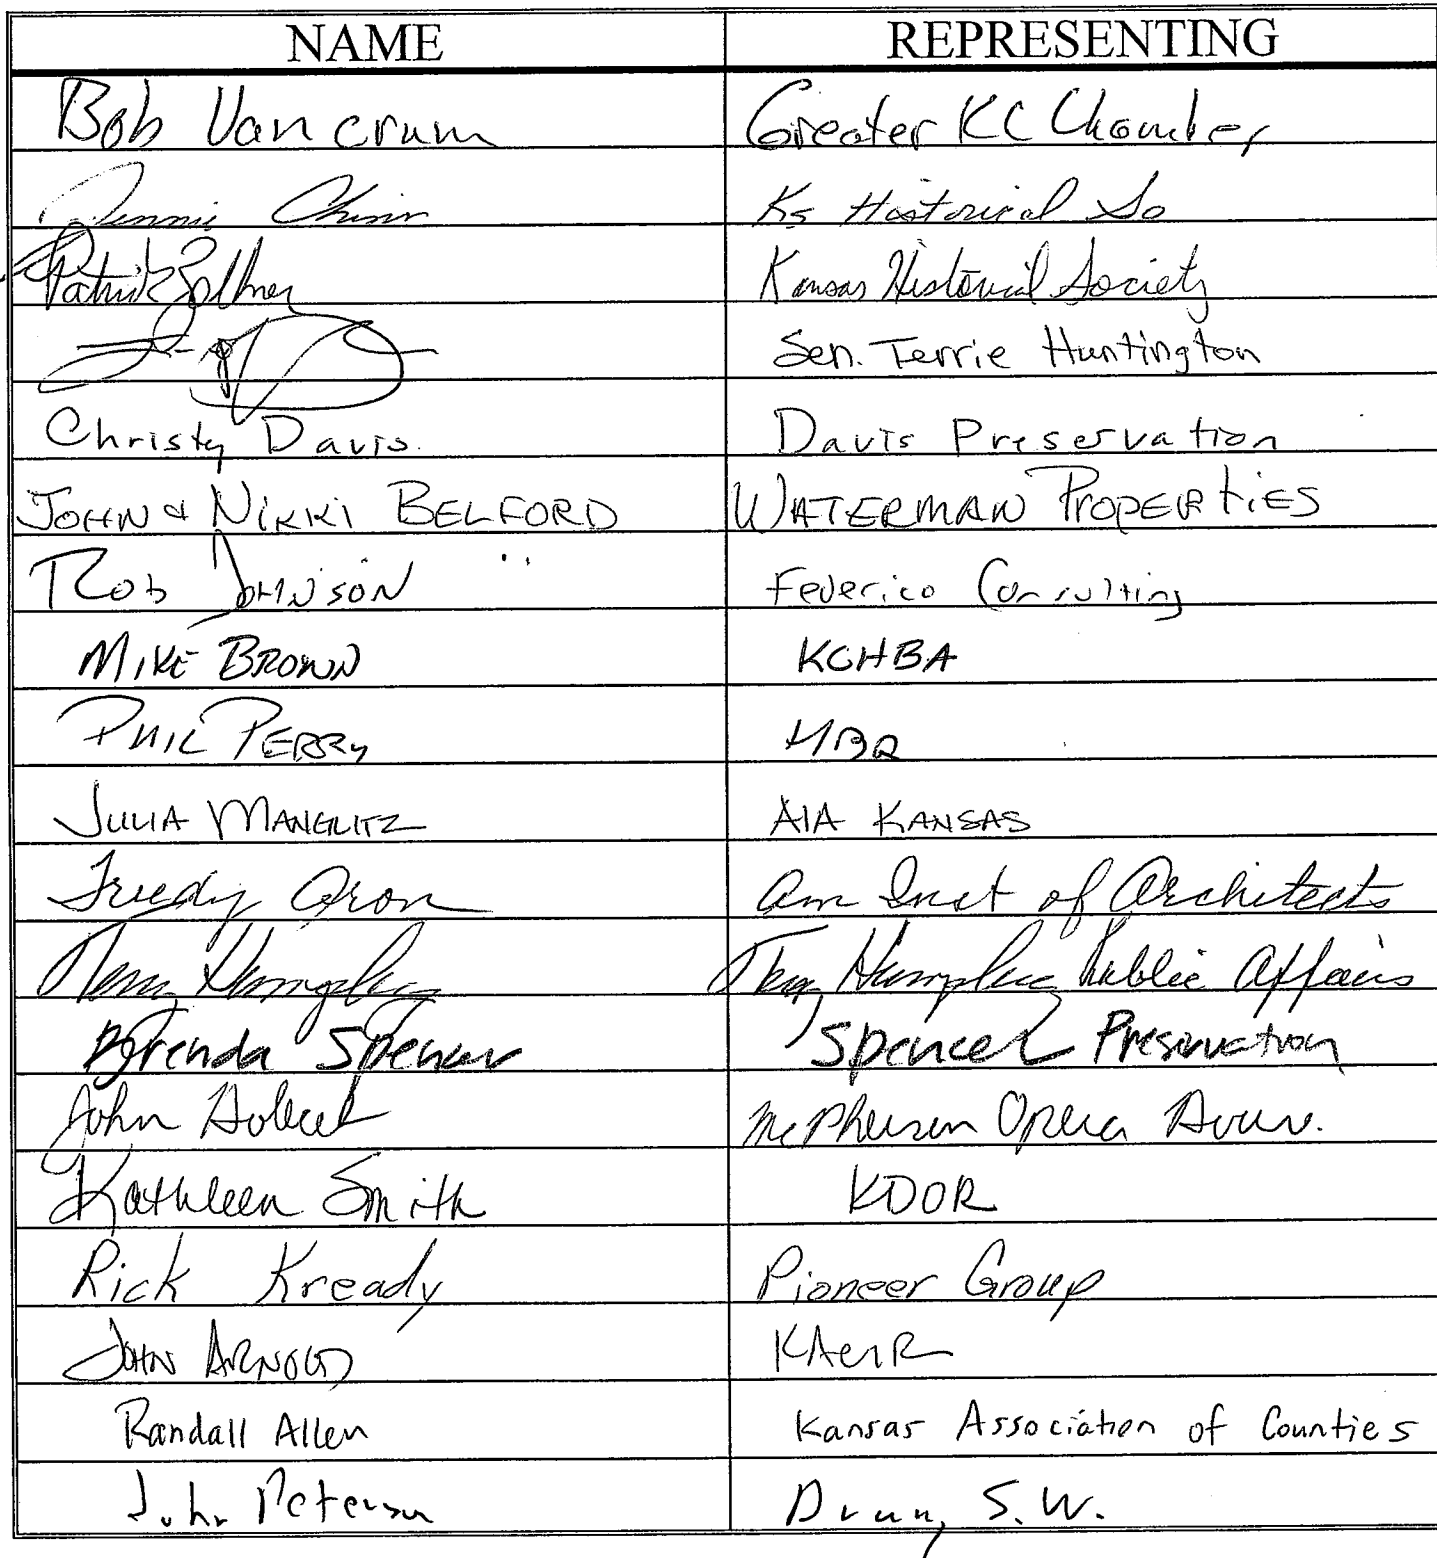 NAME REPRESENTING
Bob Vancrum Greater KC Chamber
Jennie Chinn Ks Historical So
Patrick Zollner Kansas Historical Society
Sen. Terrie Huntington
Christy Davis. Davis Preservation
JOHN & NIKKI BELFORD WATERMAN PROPERTIES
Rob JOHNSON Federico Consulting
MIKE BROWN KCHBA
PHIL PERRY HBA
JULIA MANGLITZ AIA KANSAS
Trudy Aron Am Inst of Architects
Terry Humphrey Terry Humphrey Public Affairs
Brenda Spencer Spencer Preservation
John Holecek McPherson Opera House.
Kathleen Smith KDOR
Rick Kready Pioneer Group
JOHN ARNOLD
Randall Allen Kansas Association of Counties
John Peterson S.W.